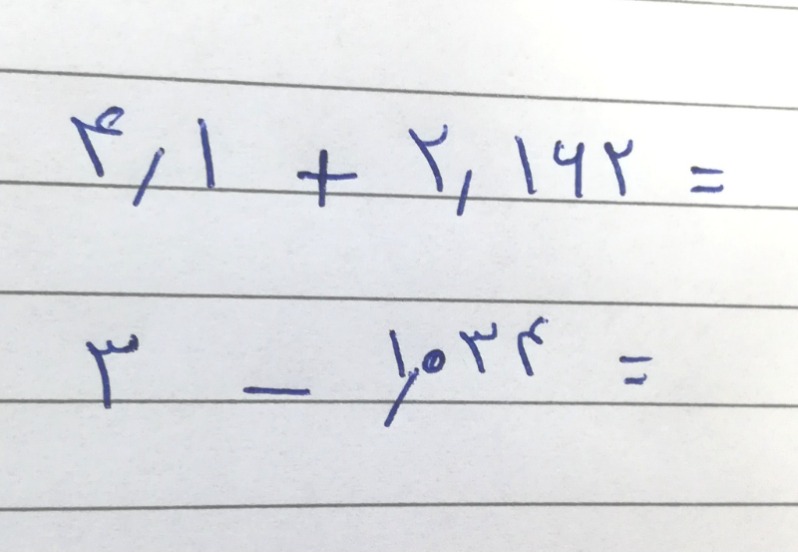 ۴,۱ + ۲,۱۶۲ =
۳ - ۱,۰۳۴ =